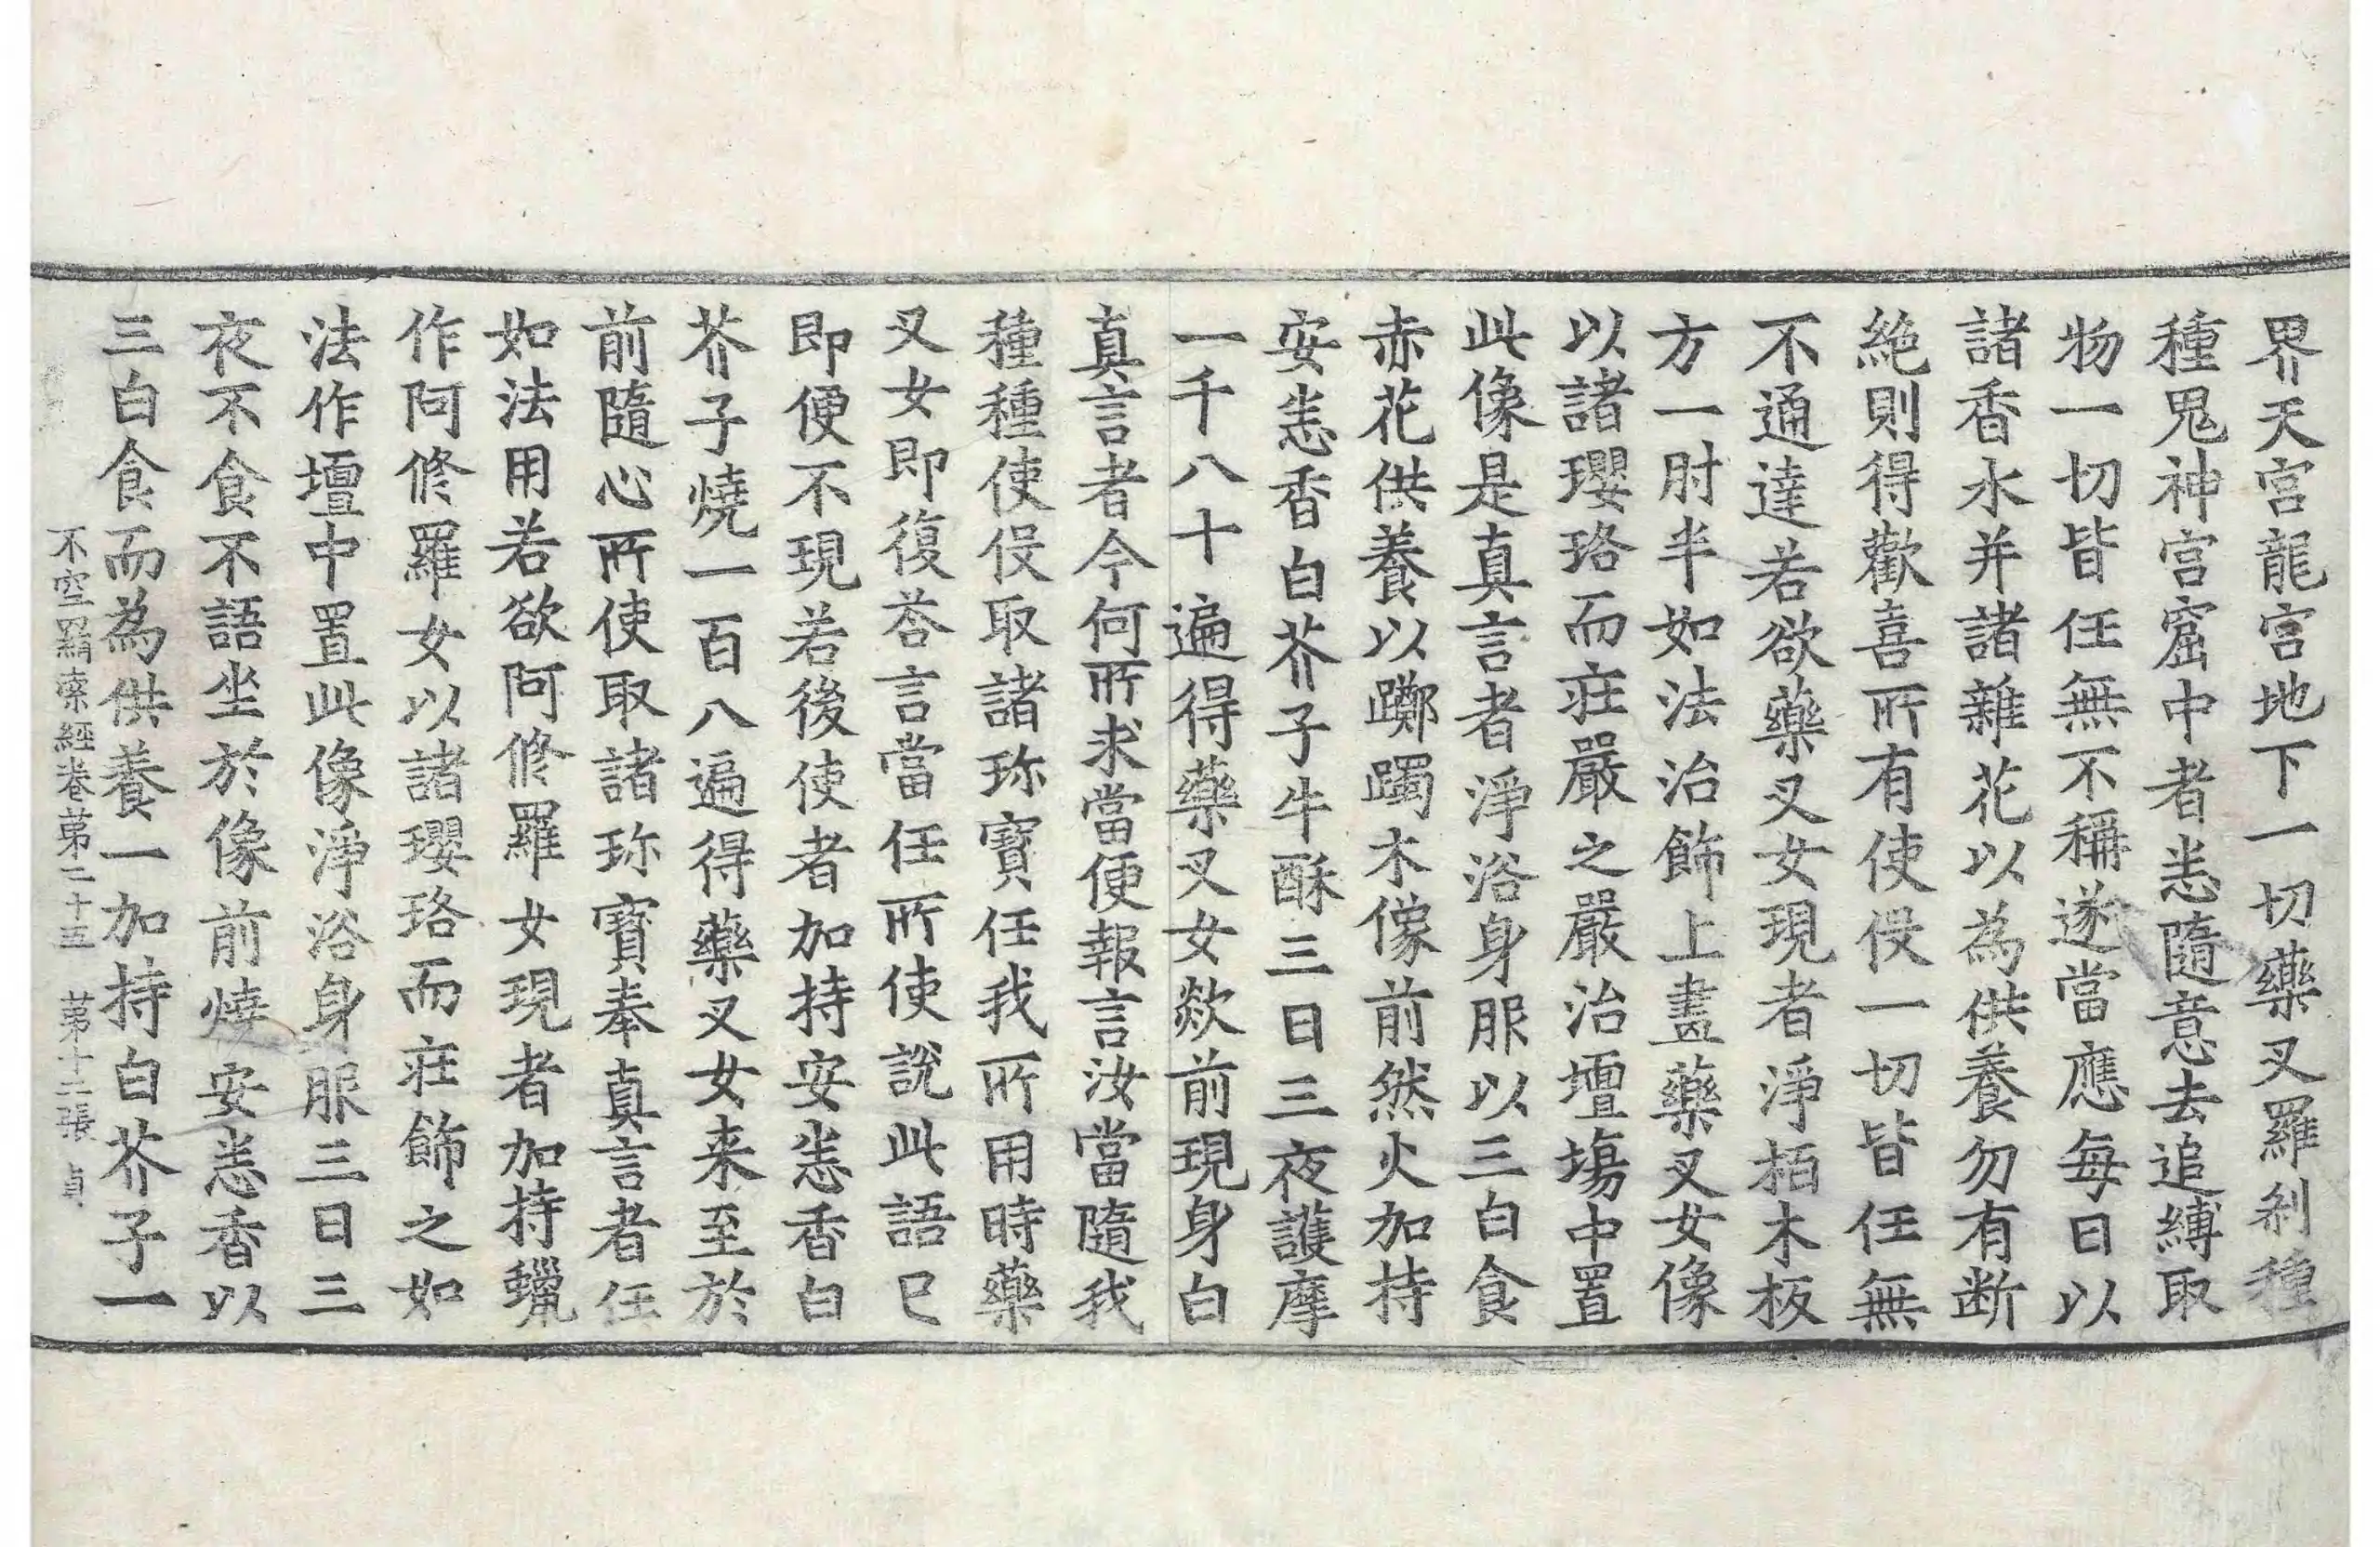 界天宮龍宮地下一切藥叉羅剎種
種鬼神宮窟中者恙隨意去追縛取
物一切皆任無不稱遂當應每日以
諸香水并諸雜花以為供養勿有断
絶則得歡喜所有使伇一切皆任無
不通達若欲藥叉女現者淨栢木板
方一肘半如法治飾上畫藥叉女像
以諸瓔珞而莊嚴之嚴治壇場中置
此像是真言者淨浴身服以三白食
赤花供養以躑躅木像前然火加持
安恙香白芥子牛酥三日三夜護摩
一千八十遍得藥叉女欻前現身白
真言者今何所求當便報言汝當隨我
種種使伇取諸珎寶任我所用時藥
叉女即復荅言當任所使說此語已
即便不現若後使者加持安恙香白
芥子燒一百八遍得藥叉女来至於
前隨心所使取諸珎寶奉真言者任
如法用若欲阿修羅女現者加持蠟
作阿修羅女以諸瓔珞而莊飾之如
法作壇中置此像淨浴身服三日三
夜不食不語坐於像前燒安恙香以
三白食而為供養一加持白芥子一
不空羂索經卷第二十五 第十二張 貞